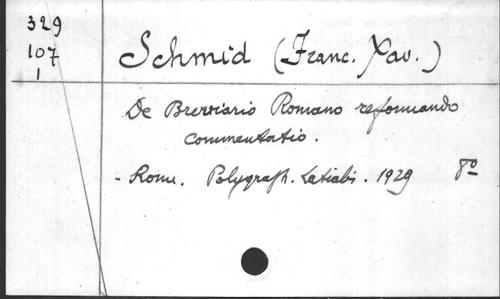 329
107
1
Schmid (Franc. Xav.)
De Breviario Romano reformando
commentatio.
- Rom. Polygraph. Latialis. 1929 8º